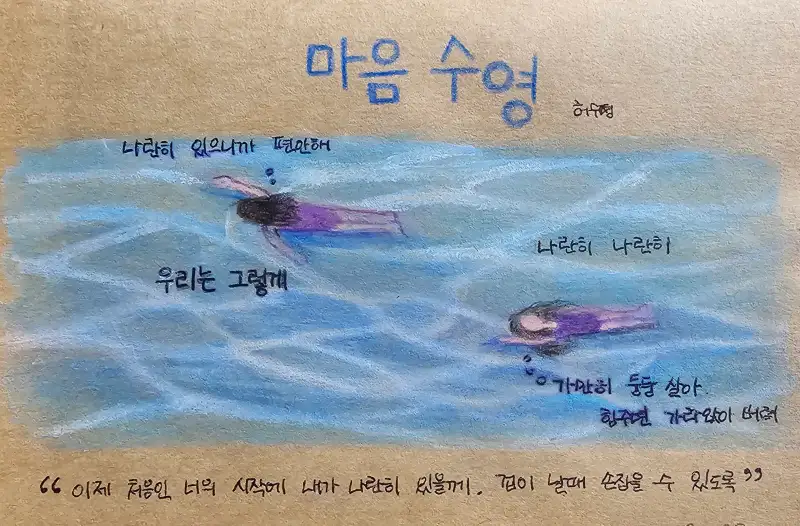 마음 수영
허수영
나란히 있으니까 편안해
우리는 그렇게
나란히 나란히
가만히 둥둥 살아.
힘주면 가라앉아 버려
“이제 처음인 너의 시작에 내가 나란히 있을께. 겁이 날때 손잡을 수 있도록”